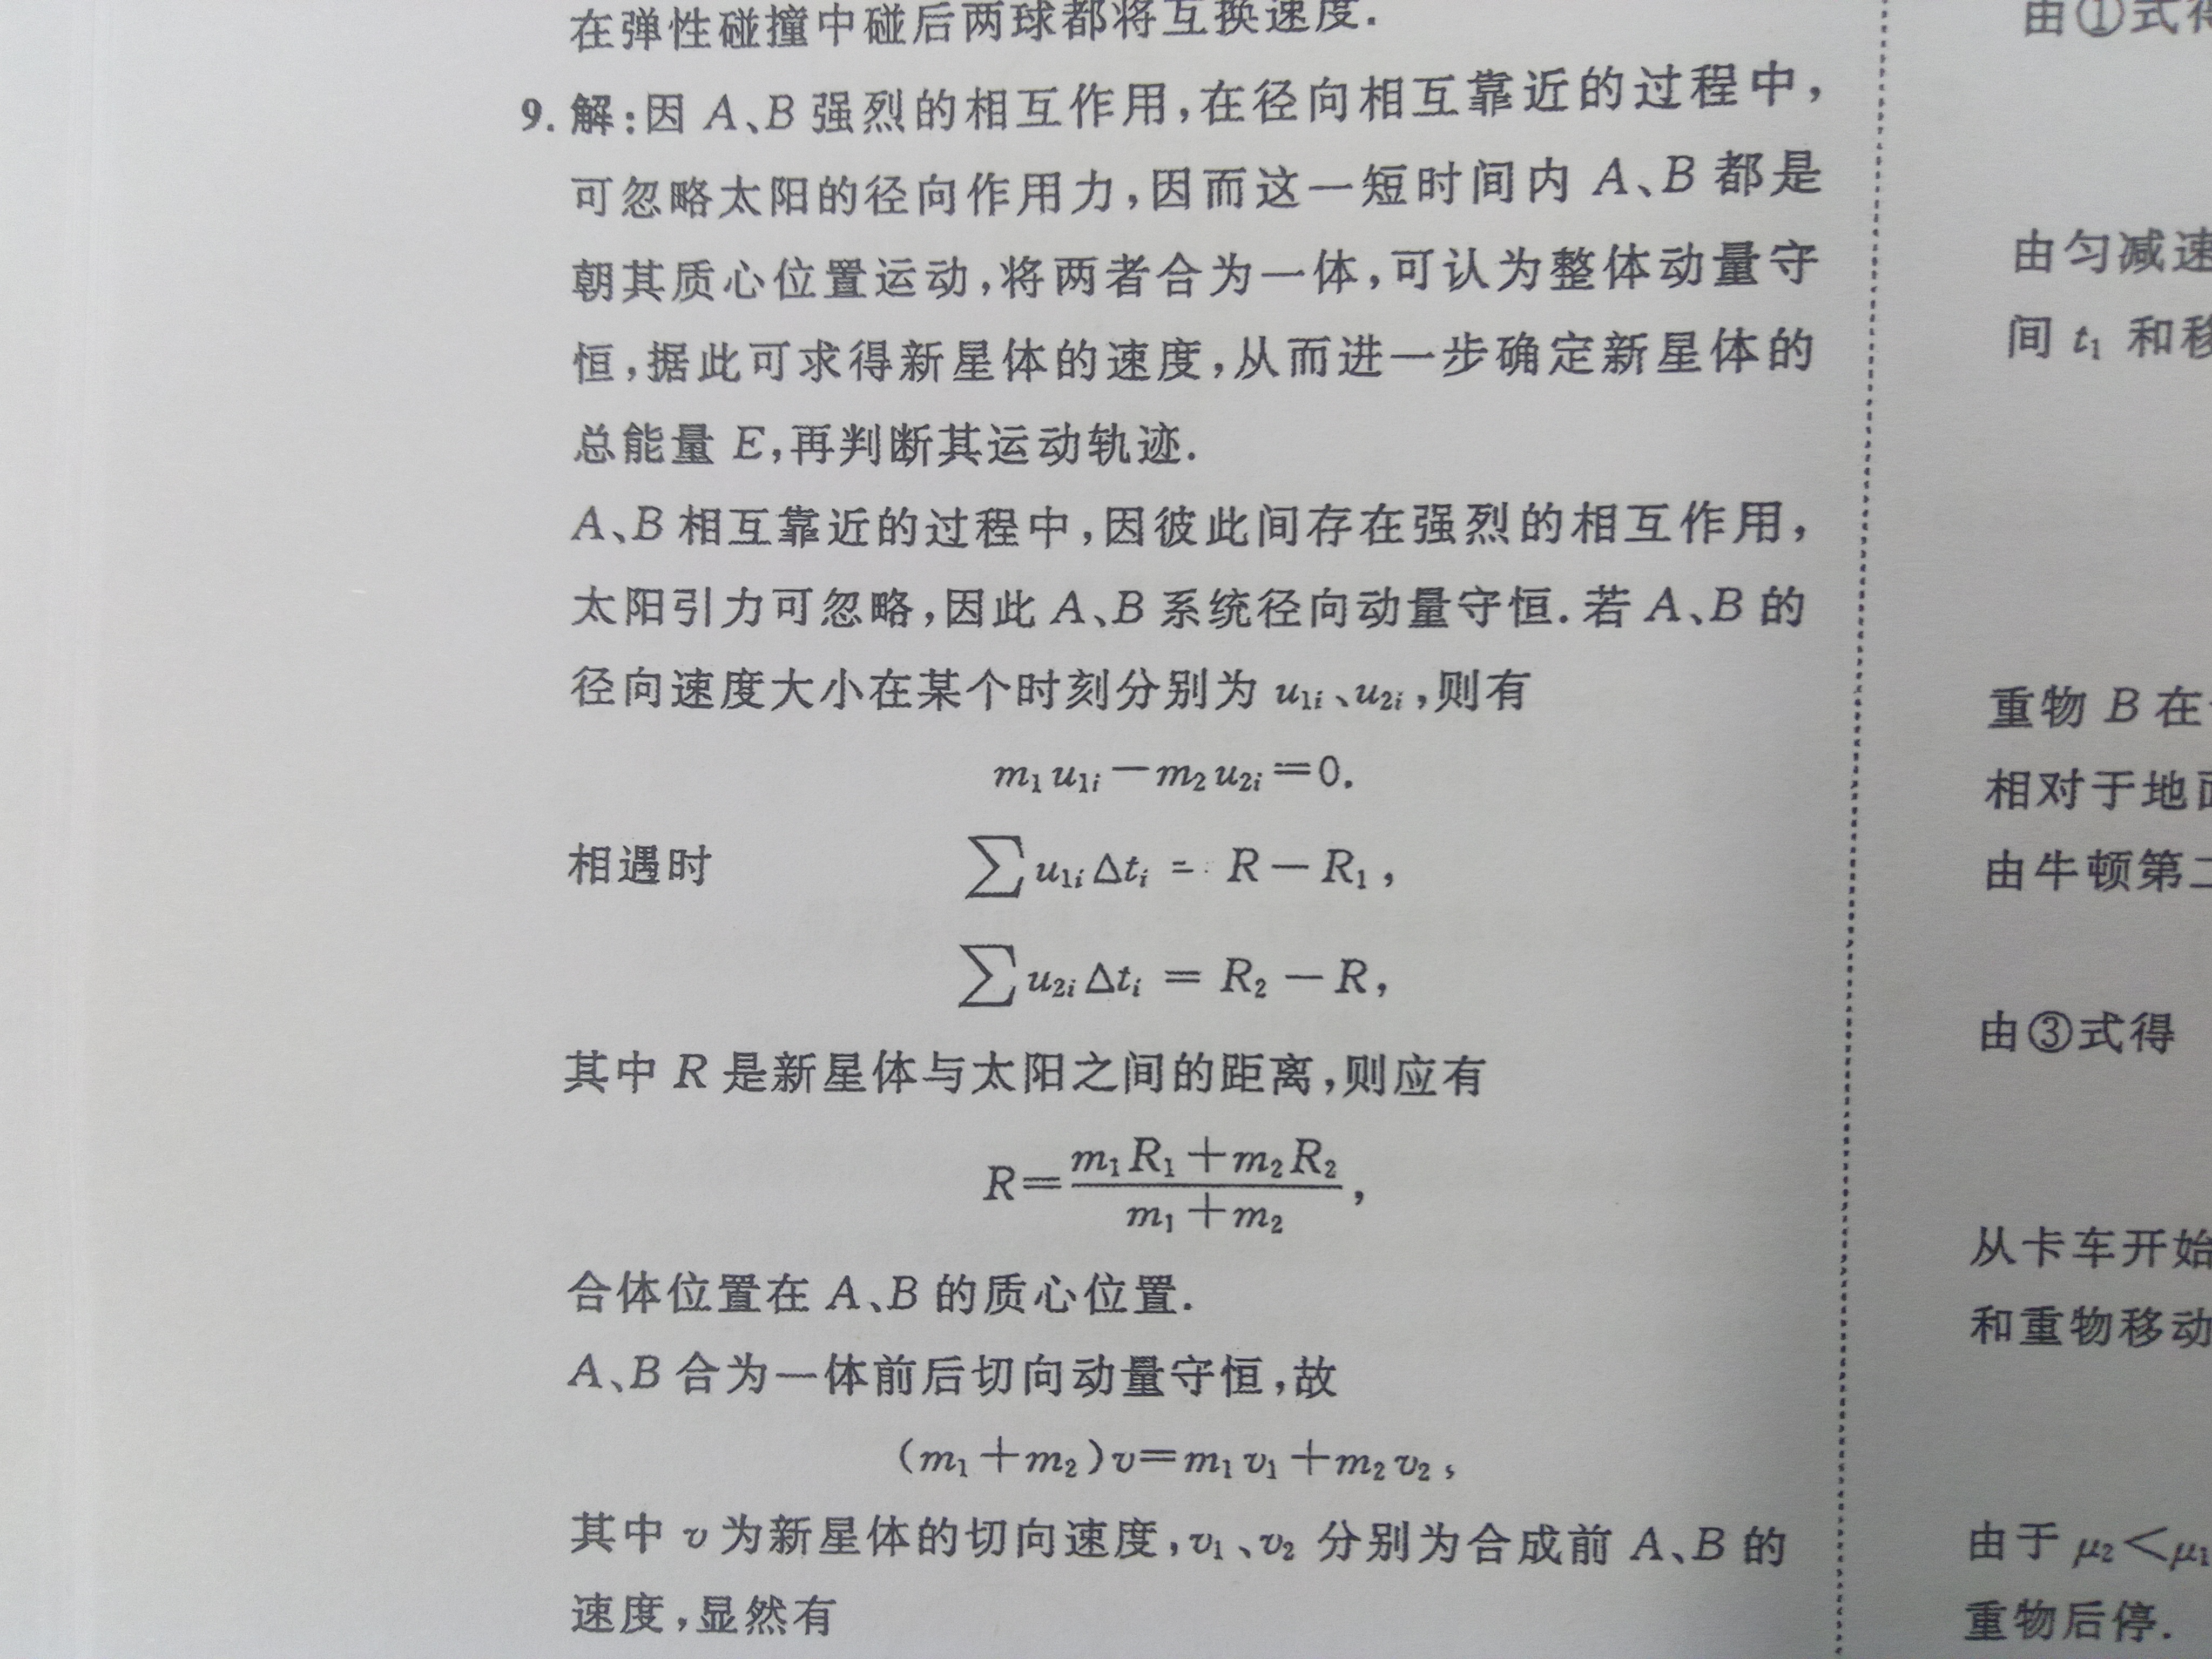 在弹性碰撞中碰后两球都将互换速度.
9. 解:因 A、B 强烈的相互作用,在径向相互靠近的过程中,
可忽略太阳的径向作用力,因而这一短时间内 A、B 都是
朝其质心位置运动,将两者合为一体,可认为整体动量守
恒,据此可求得新星体的速度,从而进一步确定新星体的
总能量 E,再判断其运动轨迹.
A、B 相互靠近的过程中,因彼此间存在强烈的相互作用,
太阳引力可忽略,因此 A、B 系统径向动量守恒. 若 A、B 的
径向速度大小在某个时刻分别为 u₁ᵢ、u₂ᵢ,则有
m₁u₁ᵢ－m₂u₂ᵢ＝0.
相遇时 ∑u₁ᵢΔtᵢ = R－R₁,
∑u₂ᵢΔtᵢ = R₂－R,
其中 R 是新星体与太阳之间的距离,则应有
R＝(m₁R₁＋m₂R₂)/(m₁＋m₂),
合体位置在 A、B 的质心位置.
A、B 合为一体前后切向动量守恒,故
(m₁＋m₂)v＝m₁v₁＋m₂v₂,
其中 v 为新星体的切向速度,v₁、v₂ 分别为合成前 A、B 的
速度,显然有
由①式得
由匀减速
间 t₁ 和移
重物 B 在
相对于地面
由牛顿第二
由③式得
从卡车开始
和重物移动
由于 μ₂＜μ₁
重物后停.